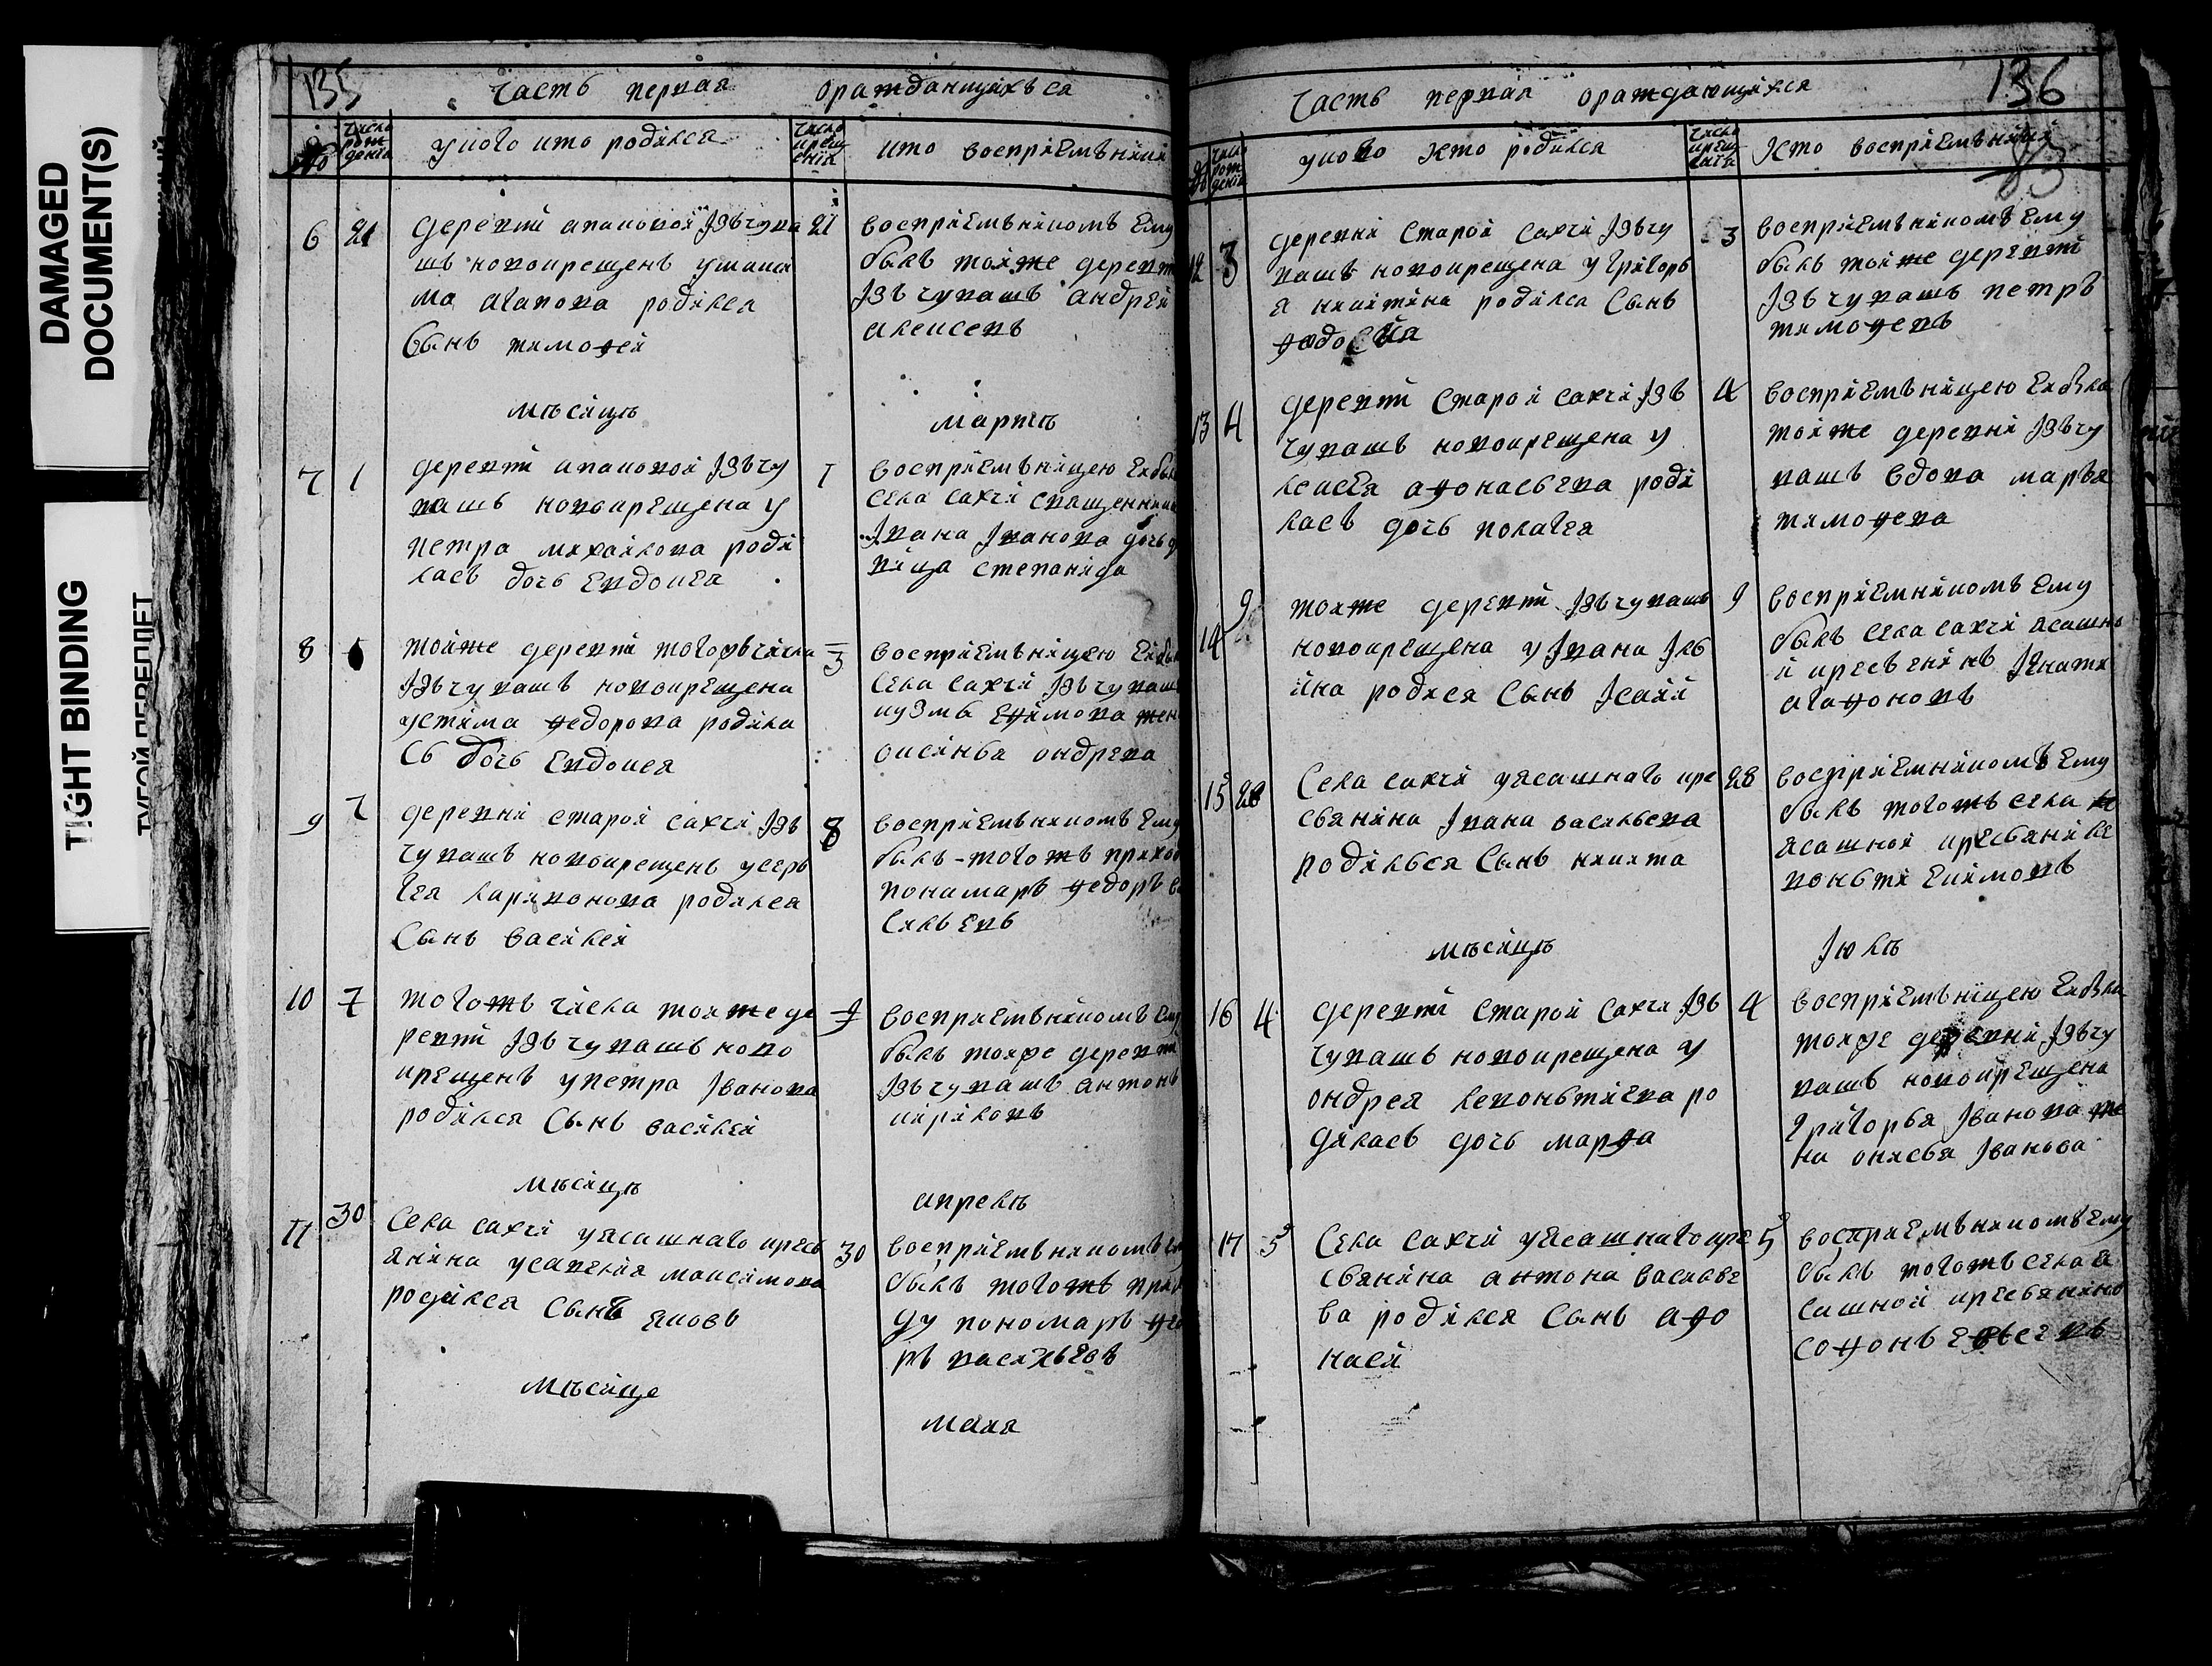 DAMAGED
DOCUMENT(S)
TIGHT BINDING
ТУГОЙ ПЕРЕПЛЕТ
135
Часть первая ораждающихъся
число рождения
у кого кто родился
число крещения
кто восприемъники
6 21 деревни апаковой Iзъ чува 21
шъ новокрещенъ у макси
ма агапова родился
Сынъ тимофей
восприемъникомъ Ему
былъ тояже деревни
Iзъ чувашъ андрей
алексевъ
мѣсяцъ мартъ
7 1 деревни апаковой Iзъ чу 1
вашъ новокрещена у
петра михайлова роди
лась дочь Евдокея
восприемъницею Ей была
села сахчи священника
Iвана Iванова дочь де
вица степанида
8 тояже деревни тогожъ числа 3
Iзъ чувашъ новокрещена
устима федорова родила
сь дочь Евдокея
восприемъницею Ей была
села сахчи Iзъ чувашъ
кузмы Ефимова жена
оксинья ондрева
9 7 деревни старой сахчи Iзъ 8
чувашъ новокрещенъ у серъ
гея ларивонова родился
Сынъ василей
восприемъникомъ Ему
былъ тогожъ приходу
понамаръ федоръ ва
сильевъ
10 7 тогожъ числа тояже де 9
ревни Iзъ чувашъ ново
крещенъ у петра Iванова
родился Сынъ василей
восприемъникомъ Ему
былъ тояже деревни
Iзъ чувашъ антонъ
кириловъ
мѣсяцъ апрель
11 30 Села сахчи у ясашнаго кресь 30
янина у савелия максимова
родился Сынъ яковъ
восприемъникомъ ему
былъ тогожъ прихо
ду пономаръ федо
ръ васильевъ
мѣсяце
маия
136
83
Часть первая ораждающихся
число рождения
у кого кто родился
число крещения
Кто восприемъники
12 3 деревни Старой сахчи Iзъ чу 3
вашъ новокрещена у Григорь
я никитина родился Сынъ
федосей
восприемъникомъ Ему
былъ тояже деревни
Iзъ чувашъ петръ
тимофевъ
13 4 деревни Старой сахчи Iзъ 4
чувашъ новокрещена у
лексея афонасьева роди
лась дочь полагея
восприемъницею Ей была
тояже деревни Iзъ чу
вашъ вдова марья
тимофева
14 9 тояже деревни Iзъ чувашъ 9
новокрещена у Iвана Iль
ина родися Сынъ Iсаий
восприемникомъ Ему
былъ села сахчи ясашно
й кресьенинъ Iгнати
агафоновъ
15 28 Села сахчи у ясашнаго кре 28
сьянина Iвана васильева
родилься Сынъ никита
восприемникомъ Ему
былъ тогожъ села
ясашной кресьянин ле
воньти Екимовъ
мѣсяцъ Iюль
16 4 деревни Старой Сахчи Iзъ 4
чувашъ новокрещена у
ондрея левоньтиева ро
дилась дочь марфа
восприемъницею Ей была
тояже деревни Iзъ чу
вашъ новокрещена
Григорья Iванова же
на онисья Iванова
17 5 Села Сахчи у ясашнаго кре 5
сьянина антона василье
ва родился Сынъ афо
насй
восприемъникомъ Ему
былъ тогожъ села я
сашной кресьянинъ
софонъ